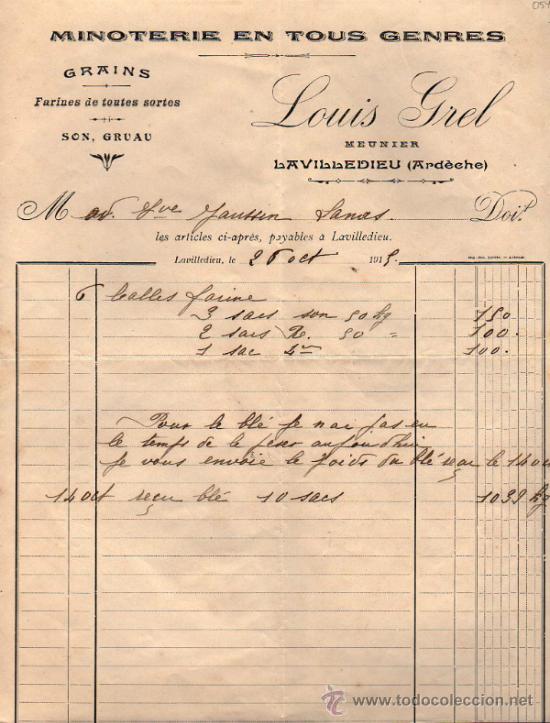 MINOTERIE EN TOUS GENRES
GRAINS
Farines de toutes sortes
SON, GRUAU
Louis Grel
MEUNIER
LAVILLEDIEU (Ardèche)
M Vve Jaussin Sanas. Doit
les articles ci-après, payables à Lavilledieu.
Lavilledieu, le 26 oct 1915.
6 balles farine
3 sacs son 50 kg 150
2 sacs 50 " 100
1 sac 100
Pour le blé je n'ai pas eu
le temps de le peser aujourd'hui
je vous envoie le poids du blé reçu le 14 oct
14 oct reçu blé 10 sacs 1039 kg
www.todocoleccion.net